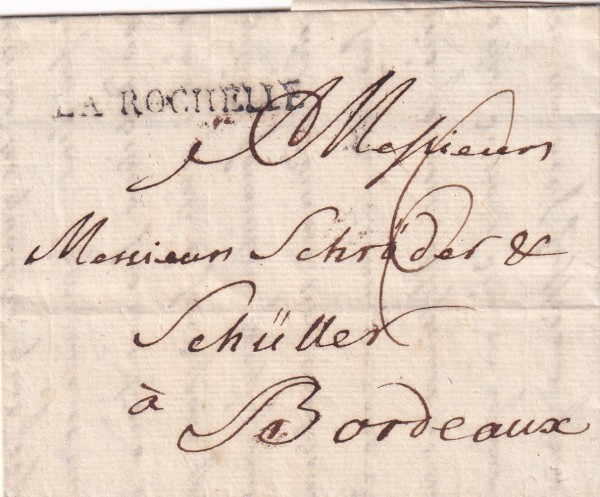 LA ROCHELLE
A Messieurs
Messieurs Schröder &
Schüller
à Bordeaux